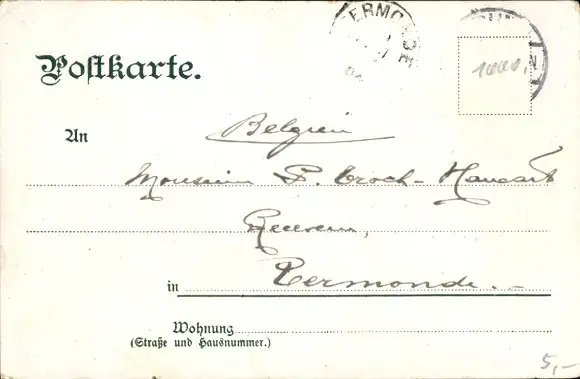 TERMONDE
Postkarte.
1000.
An
Belgien
Monsieur P. Croch-Hancart
in Termonde.-
Wohnung
(Straße und Hausnummer.)
5,-